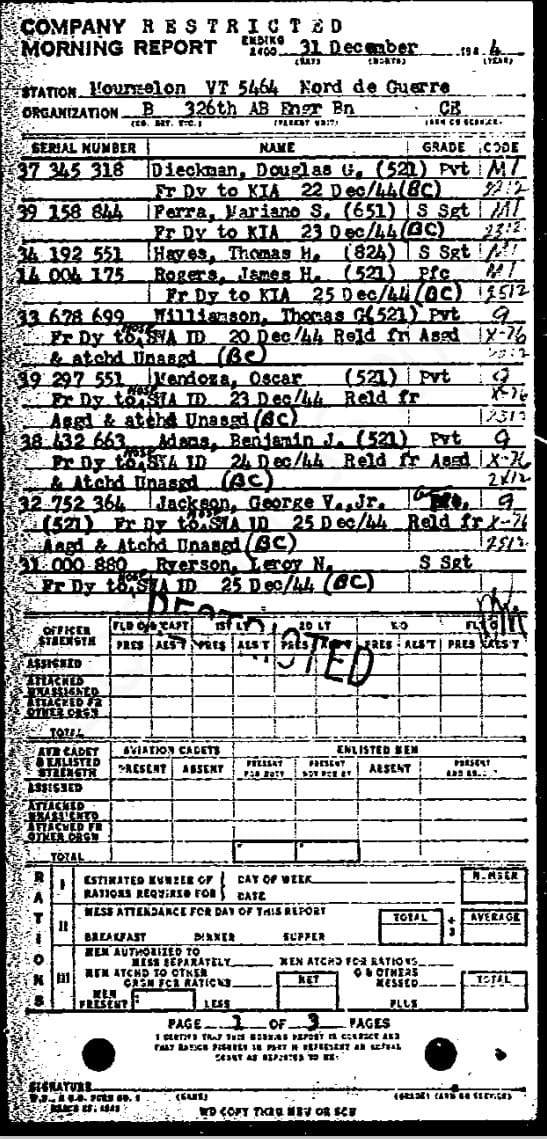 COMPANY RESTRICTED
MORNING REPORT ENDING 2400 31 December 194 4
(DAY) (MONTH) (YEAR)
STATION Mourmelon VT 5464 Nord de Guerre
ORGANIZATION B 326th AB Engr Bn CE
(CO. DET. ETC.) (PARENT UNIT) (ARM OR SERVICE)
SERIAL NUMBER NAME GRADE CODE
37 345 318 Dieckman, Douglas G. (521) Pvt MI
Fr Dy to KIA 22 Dec/44 (BC)
39 158 844 Ferra, Mariano S. (651) S Sgt MI
Fr Dy to KIA 23 Dec/44 (BC) 2312
34 192 551 Hayes, Thomas H. (824) S Sgt MI
14 004 175 Rogers, James H. (521) Pfc MI
Fr Dy to KIA 25 Dec/44 (BC) 2512
33 678 699 Williamson, Thomas G(521) Pvt 9
Fr Dy to Hosp SWA ID 20 Dec/44 Reld fr Asgd X-76
& atchd Unasgd (BC)
39 297 551 Mendoza, Oscar (521) Pvt 9
Fr Dy to Hosp SWA ID 23 Dec/44 Reld fr X-76
Asgd & atchd Unasgd (BC) 2312
38 432 663 Adams, Benjamin J. (521) Pvt 9
Fr Dy to Hosp SWA ID 24 Dec/44 Reld fr Asgd X-76
& Atchd Unasgd (BC) 2412
32 752 364 Jackson, George V., Jr. 9
(521) Fr Dy to Hosp SWA ID 25 Dec/44 Reld fr X-76
Asgd & Atchd Unasgd (BC) 2512
31 000 880 Ryerson, Leroy N. S Sgt
Fr Dy to Hosp SWA ID 25 Dec/44 (BC)
RESTRICTED
OFFICER STRENGTH FLD O & CAPT 1ST LT 2D LT WO FL O
PRES ABS'T PRES ABS'T PRES ABS'T PRES ABS'T PRES ABS'T
ASSIGNED
ATTACHED UNASSIGNED
ATTACHED FR OTHER ORGN
TOTAL
AVN CADET & ENLISTED STRENGTH AVIATION CADETS ENLISTED MEN
PRESENT ABSENT PRESENT FOR DUTY PRESENT NOT FOR DY ABSENT PRESENT AND ABSENT
ASSIGNED
ATTACHED UNASSIGNED
ATTACHED FR OTHER ORGN
TOTAL
RATIONS
I ESTIMATED NUMBER OF RATIONS REQUIRED FOR DAY OF WEEK DATE NUMBER
II MESS ATTENDANCE FOR DAY OF THIS REPORT TOTAL ÷ 3 AVERAGE
BREAKFAST DINNER SUPPER
III MEN AUTHORIZED TO MESS SEPARATELY MEN ATCHD FOR RATIONS
MEN ATCHD TO OTHER ORGN FOR RATIONS NET O & OTHERS MESSED TOTAL
MEN PRESENT LESS PLUS
PAGE 1 OF 3 PAGES
I CERTIFY THAT THIS MORNING REPORT IS CORRECT AND
THAT RATION FIGURES IN PART III REPRESENT AN ACTUAL
COUNT AS REPORTED TO ME:
SIGNATURE
W.D., A.G.O. FORM NO. 1 (NAME) (GRADE) (ARM OR SERVICE)
WD COPY THRU MRU OR SCU